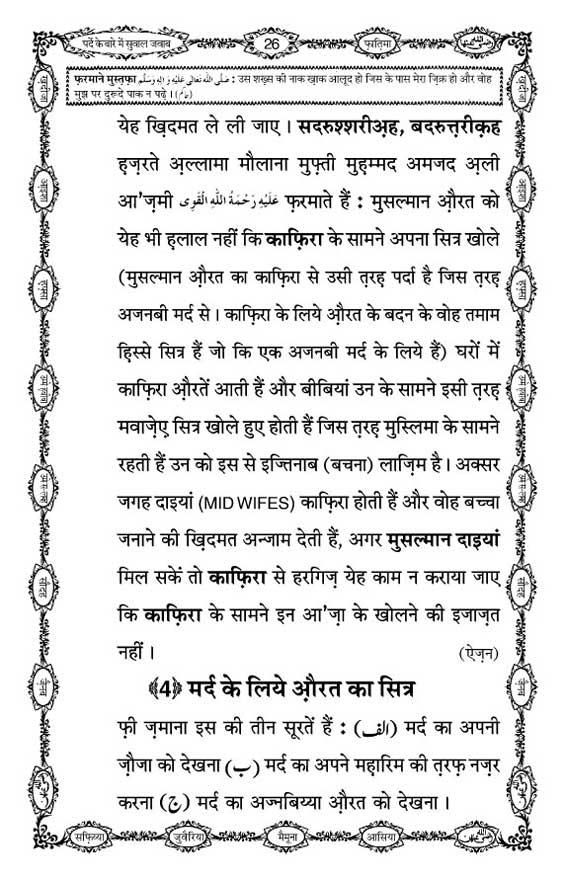 पर्दे के बारे में सुवाल जवाब
26
फ़ातिमा
फ़रमाने मुस्तफ़ा صَلَّى اللّٰهُ تَعَالٰى عَلَيْهِ وَاٰلِهٖ وَسَلَّم : उस शख़्स की नाक ख़ाक आलूद हो जिस के पास मेरा ज़िक्र हो और वोह
मुझ पर दुरूदे पाक न पढ़े। (حاكم)
येह ख़िदमत ले ली जाए। सदरुश्शरीअ़ह, बदरुत्त़रीक़ह
ह़ज़रते अ़ल्लामा मौलाना मुफ़्ती मुह़म्मद अमजद अ़ली
आ'ज़मी عَلَيْهِ رَحْمَةُ اللّٰهِ الْقَوِى फ़रमाते हैं : मुसल्मान औ़रत को
येह भी ह़लाल नहीं कि काफ़िरा के सामने अपना सित्र खोले
(मुसल्मान औ़रत का काफ़िरा से उसी त़रह़ पर्दा है जिस त़रह़
अजनबी मर्द से। काफ़िरा के लिये औ़रत के बदन के वोह तमाम
ह़िस्से सित्र हैं जो कि एक अजनबी मर्द के लिये हैं) घरों में
काफ़िरा औ़रतें आती हैं और बीबियां उन के सामने इसी त़रह़
मवाज़ेए़ सित्र खोले हुए होती हैं जिस त़रह़ मुस्लिमा के सामने
रहती हैं उन को इस से इज्तिनाब (बचना) लाज़िम है। अक्सर
जगह दाइयां (MID WIFES) काफ़िरा होती हैं और वोह बच्चा
जनाने की ख़िदमत अन्जाम देती हैं, अगर मुसल्मान दाइयां
मिल सकें तो काफ़िरा से हरगिज़ येह काम न कराया जाए
कि काफ़िरा के सामने इन आ'ज़ा के खोलने की इजाज़त
नहीं। (ऐज़न)
﴾4﴿ मर्द के लिये औ़रत का सित्र
फ़ी ज़माना इस की तीन सूरतें हैं : (الف) मर्द का अपनी
ज़ौजा को देखना (ب) मर्द का अपने मह़ारिम की त़रफ़ नज़र
करना (ج) मर्द का अज्नबिय्या औ़रत को देखना।
सफ़िय्या
जुवैरिया
मैमूना
आसिया